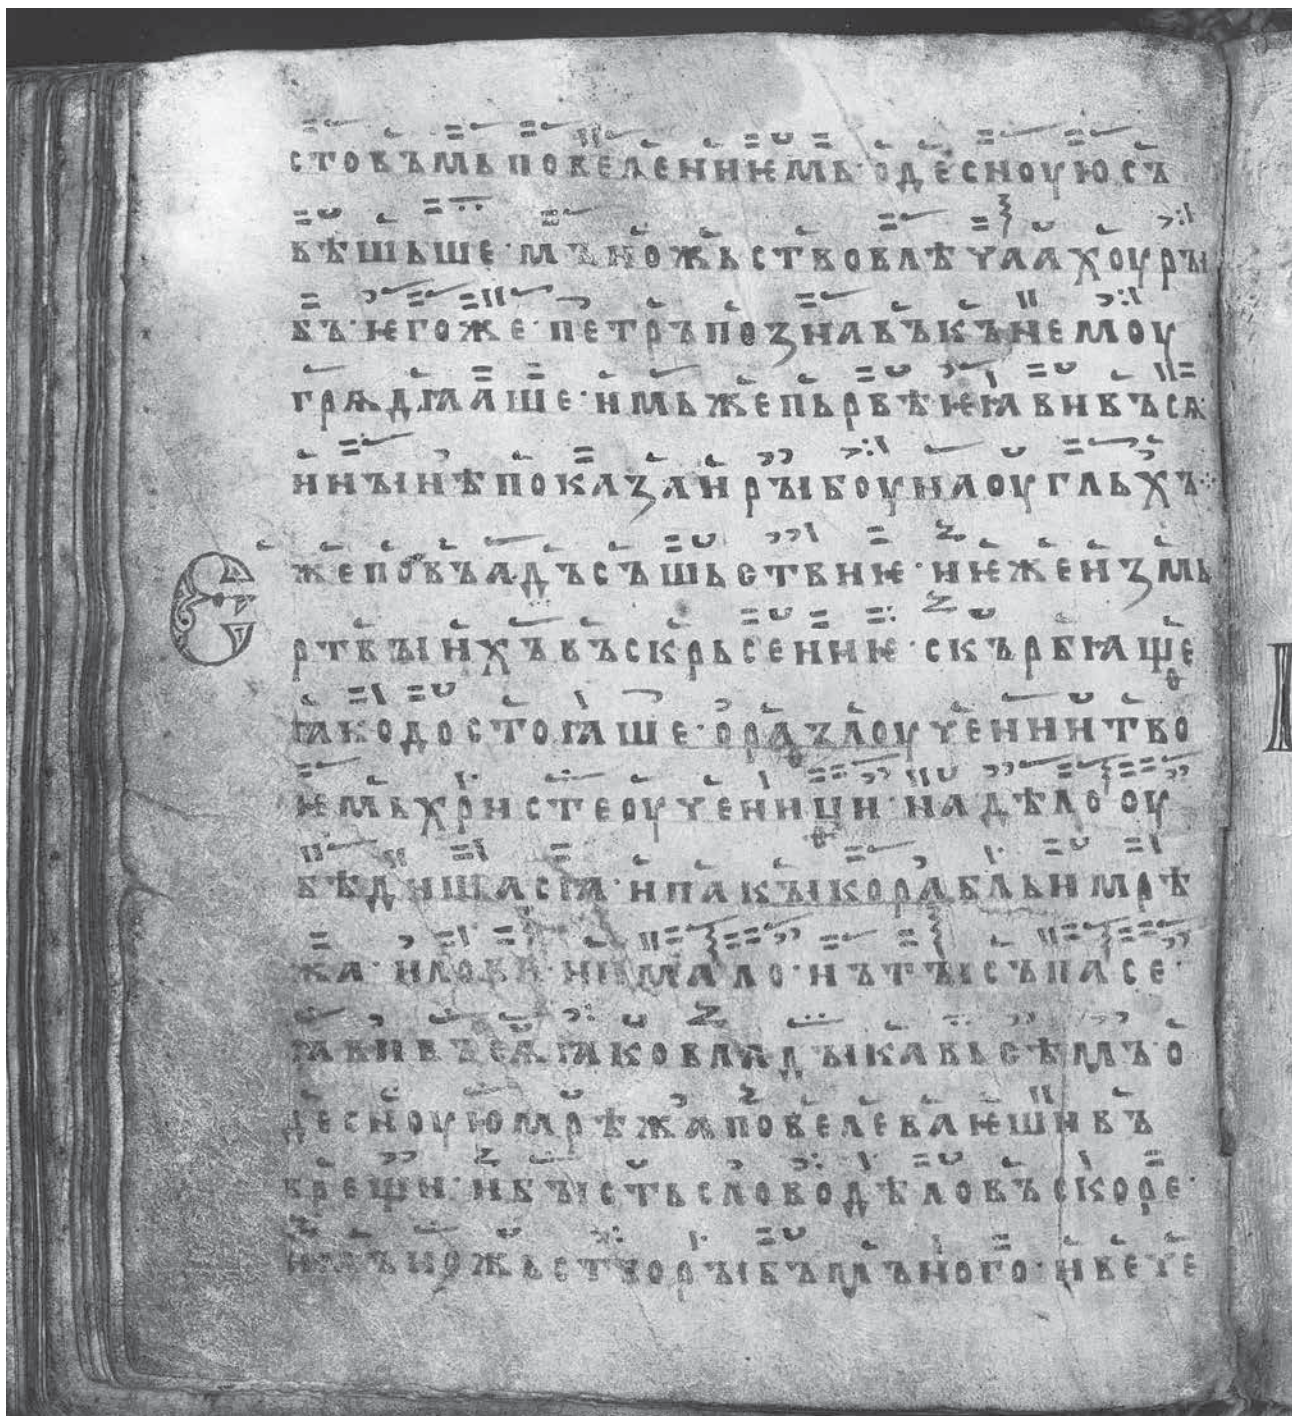 стовъмь повелениѥмь · одесноую съ
вѣшьше · мъножьство влѣчаахоу ры
бъ · ѥгоже · петръ познавъ къ немоу
грѧдꙗаше · имьже пьрвѣѥ ꙗвивъсѧ ·
и нꙑнѣ показаи рꙑбоу на оугльхъ ⁘
Єже по въ адъ съшьствиѥ · и ѥже из мь
ртвꙑихъ въскрьсениѥ · скърбѧще
ꙗко достоꙗше · о раздлоучении тво
ѥмь христе оученици · на дѣло оу
бѣдишасꙗ · и пакꙑ корабль и мрѣ
жа · и ловъ ни мало · нъ тꙑ съпасе ·
ꙗвивъсѧ ꙗко владꙑка вьсѣмъ о
десноую мрѣжѧ повелеваѥши въ
врещи · и бꙑсть слово дѣло въскоре ·
и мъножьство рꙑбъ мъного · и вече